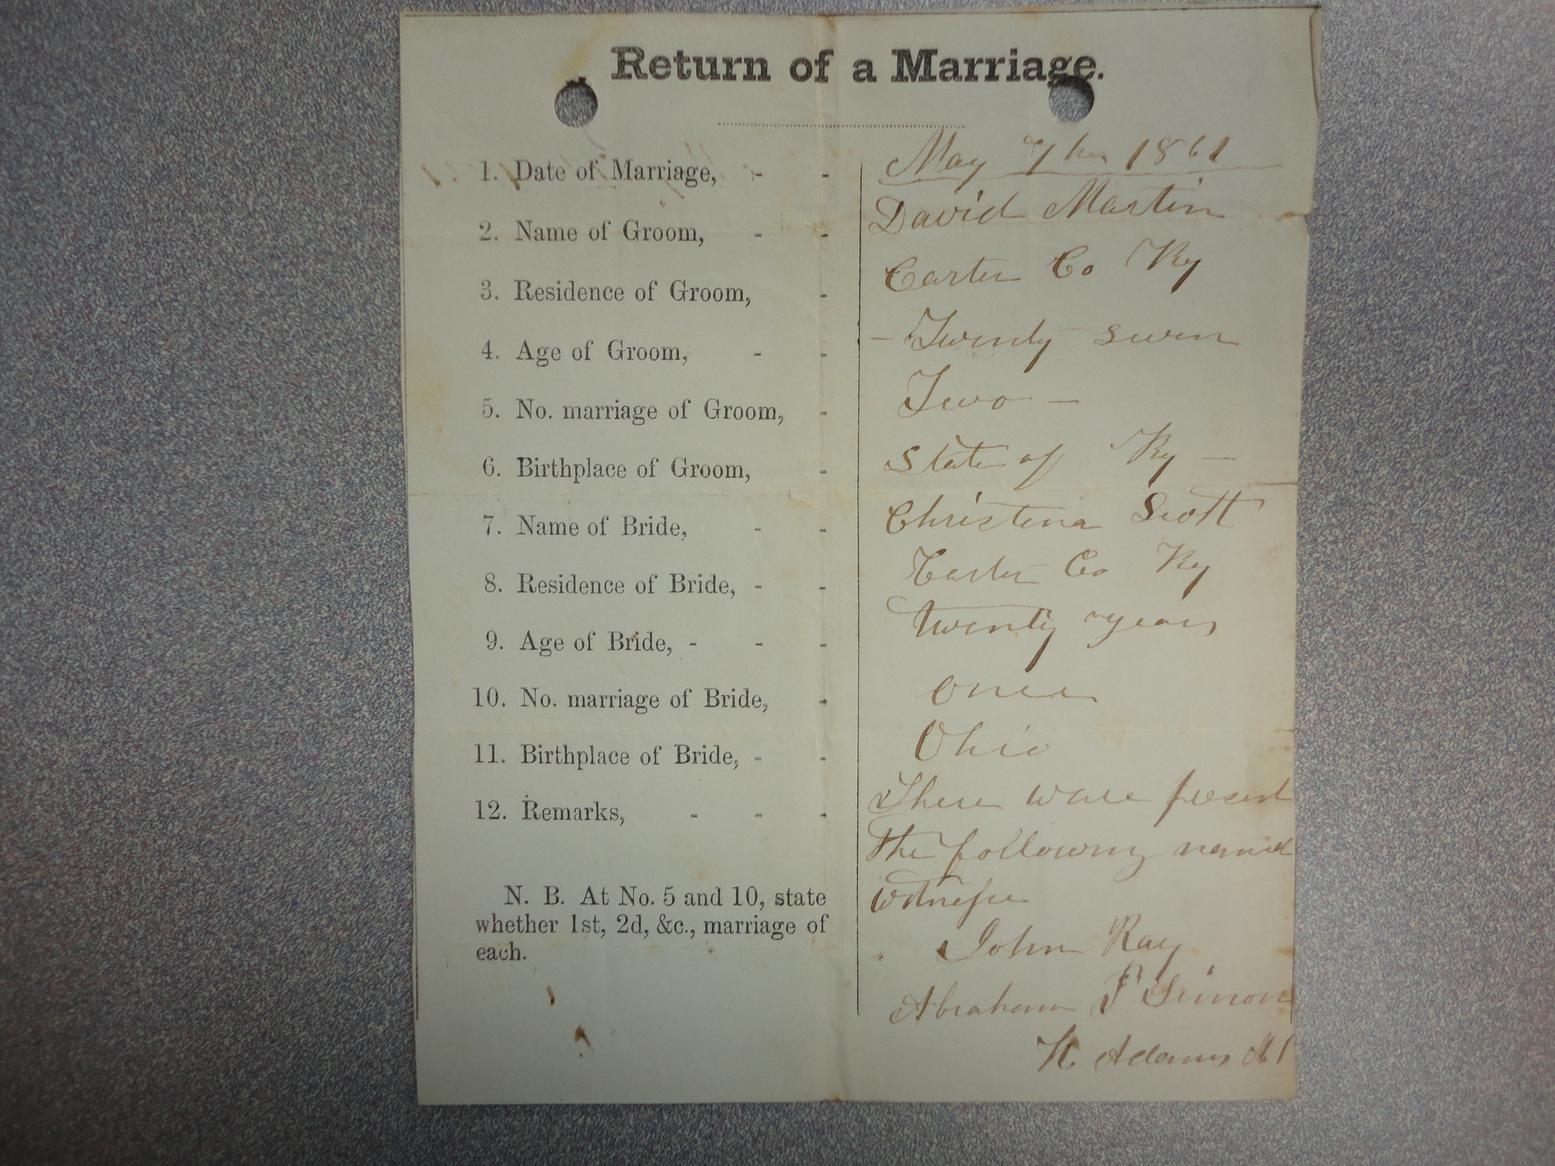 Return of a Marriage.
1. Date of Marriage, - - May 7th 1861
2. Name of Groom, - - David Martin
3. Residence of Groom, - Carter Co Ky
4. Age of Groom, - - Twenty seven
5. No. marriage of Groom, - Two -
6. Birthplace of Groom, - State of Ky -
7. Name of Bride, - - Christena Scott
8. Residence of Bride, - - Carter Co Ky
9. Age of Bride, - - - twenty years
10. No. marriage of Bride, - once
11. Birthplace of Bride, - - Ohio
12. Remarks, - - - There ware present
the following named
witnesses
N. B. At No. 5 and 10, state
whether 1st, 2d, &c., marriage of
each.
John Ray
Abraham Simon
Adams